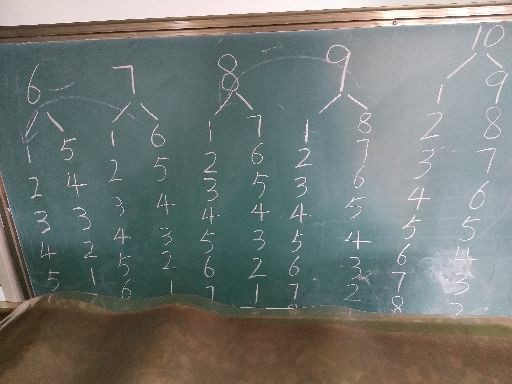 6 7 8 9 10
1 5 1 6 1 7 1 8 1 9
2 4 2 5 2 6 2 7 2 8
3 3 3 4 3 5 3 6 3 7
4 2 4 3 4 4 4 5 4 6
5 1 5 2 5 3 5 4 5 5
6 1 6 2 6 3 6 4
7 1 7 2 7 3
8